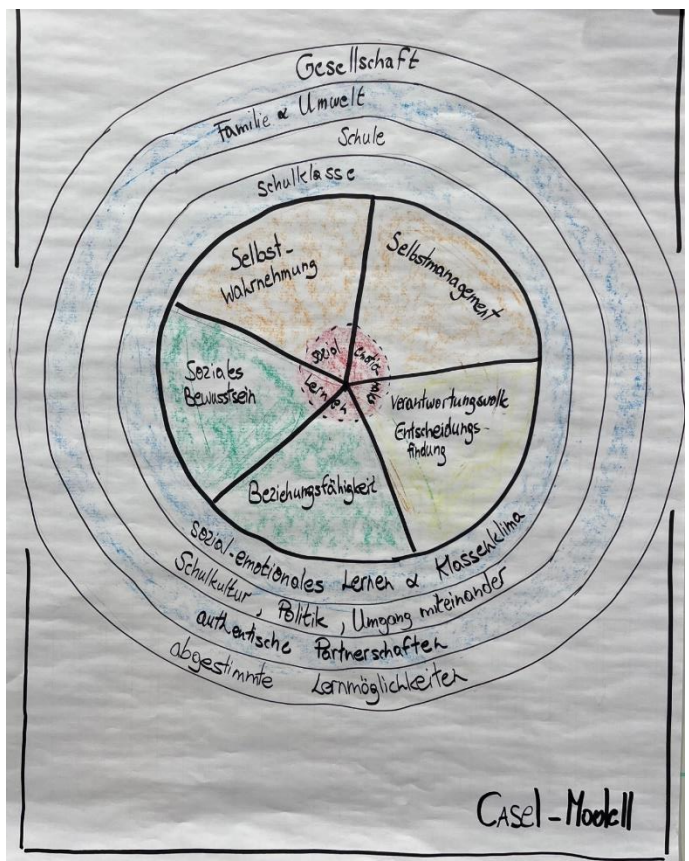 Gesellschaft
Familie & Umwelt
Schule
Schulklasse
Selbst-
Wahrnehmung
Selbstmanagement
Soziales
Bewusstsein
sozial emotionales
Lernen
Verantwortungsvolle
Entscheidungs-
findung
Beziehungsfähigkeit
sozial-emotionales Lernen & Klassenklima
Schulkultur, Politik, Umgang miteinander
authentische Partnerschaften
abgestimmte Lernmöglichkeiten
CASEl-Modell